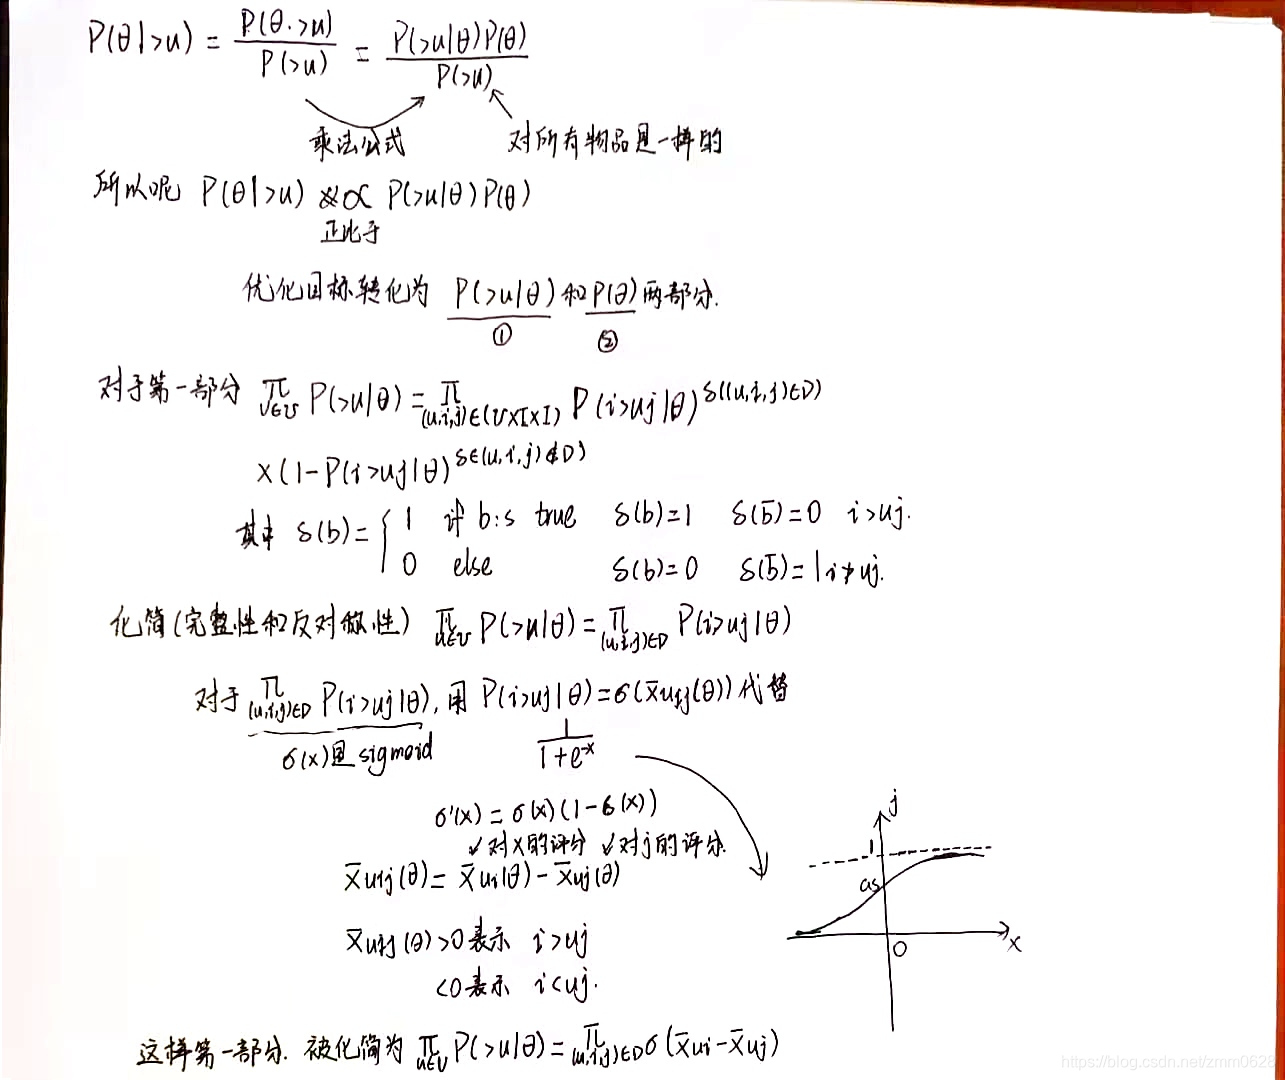 P(θ|>u) = P(θ.>u) / P(>u) = P(>u|θ)P(θ) / P(>u)
乘法公式 对所有物品是一样的
所以呢 P(θ|>u) ∝ P(>u|θ)P(θ)
正比于
优化目标转化为 P(>u|θ) 和 P(θ) 两部分.
① ②
对于第一部分 π u∈U P(>u|θ) = π (u,i,j)∈(U×I×I) P(i>uj|θ)^δ((u,i,j)∈D)
×(1-P(i>uj|θ)^δ∈(u,i,j)∉D)
其中 δ(b) = { 1 if b is true δ(b)=1 δ(b̄)=0 i>uj.
0 else δ(b)=0 δ(b̄)=1 i≯uj.
化简(完整性和反对称性) π u∈U P(>u|θ) = π (u,i,j)∈D P(i>uj|θ)
对于 π (u,i,j)∈D P(i>uj|θ), 用 P(i>uj|θ)=σ(x̄uij(θ)) 代替
σ(x)是sigmoid 1/(1+e^-x)
σ'(x) = σ(x)(1-σ(x))
对x的评分 对j的评分.
x̄uij(θ) = x̄ui(θ) - x̄uj(θ)
x̄uij(θ)>0 表示 i>uj
<0 表示 i<uj.
j
1
0.5
0
x
这样第一部分. 被化简为 π u∈U P(>u|θ) = π (u,i,j)∈D σ(x̄ui-x̄uj)
https://blog.csdn.net/zmm0628